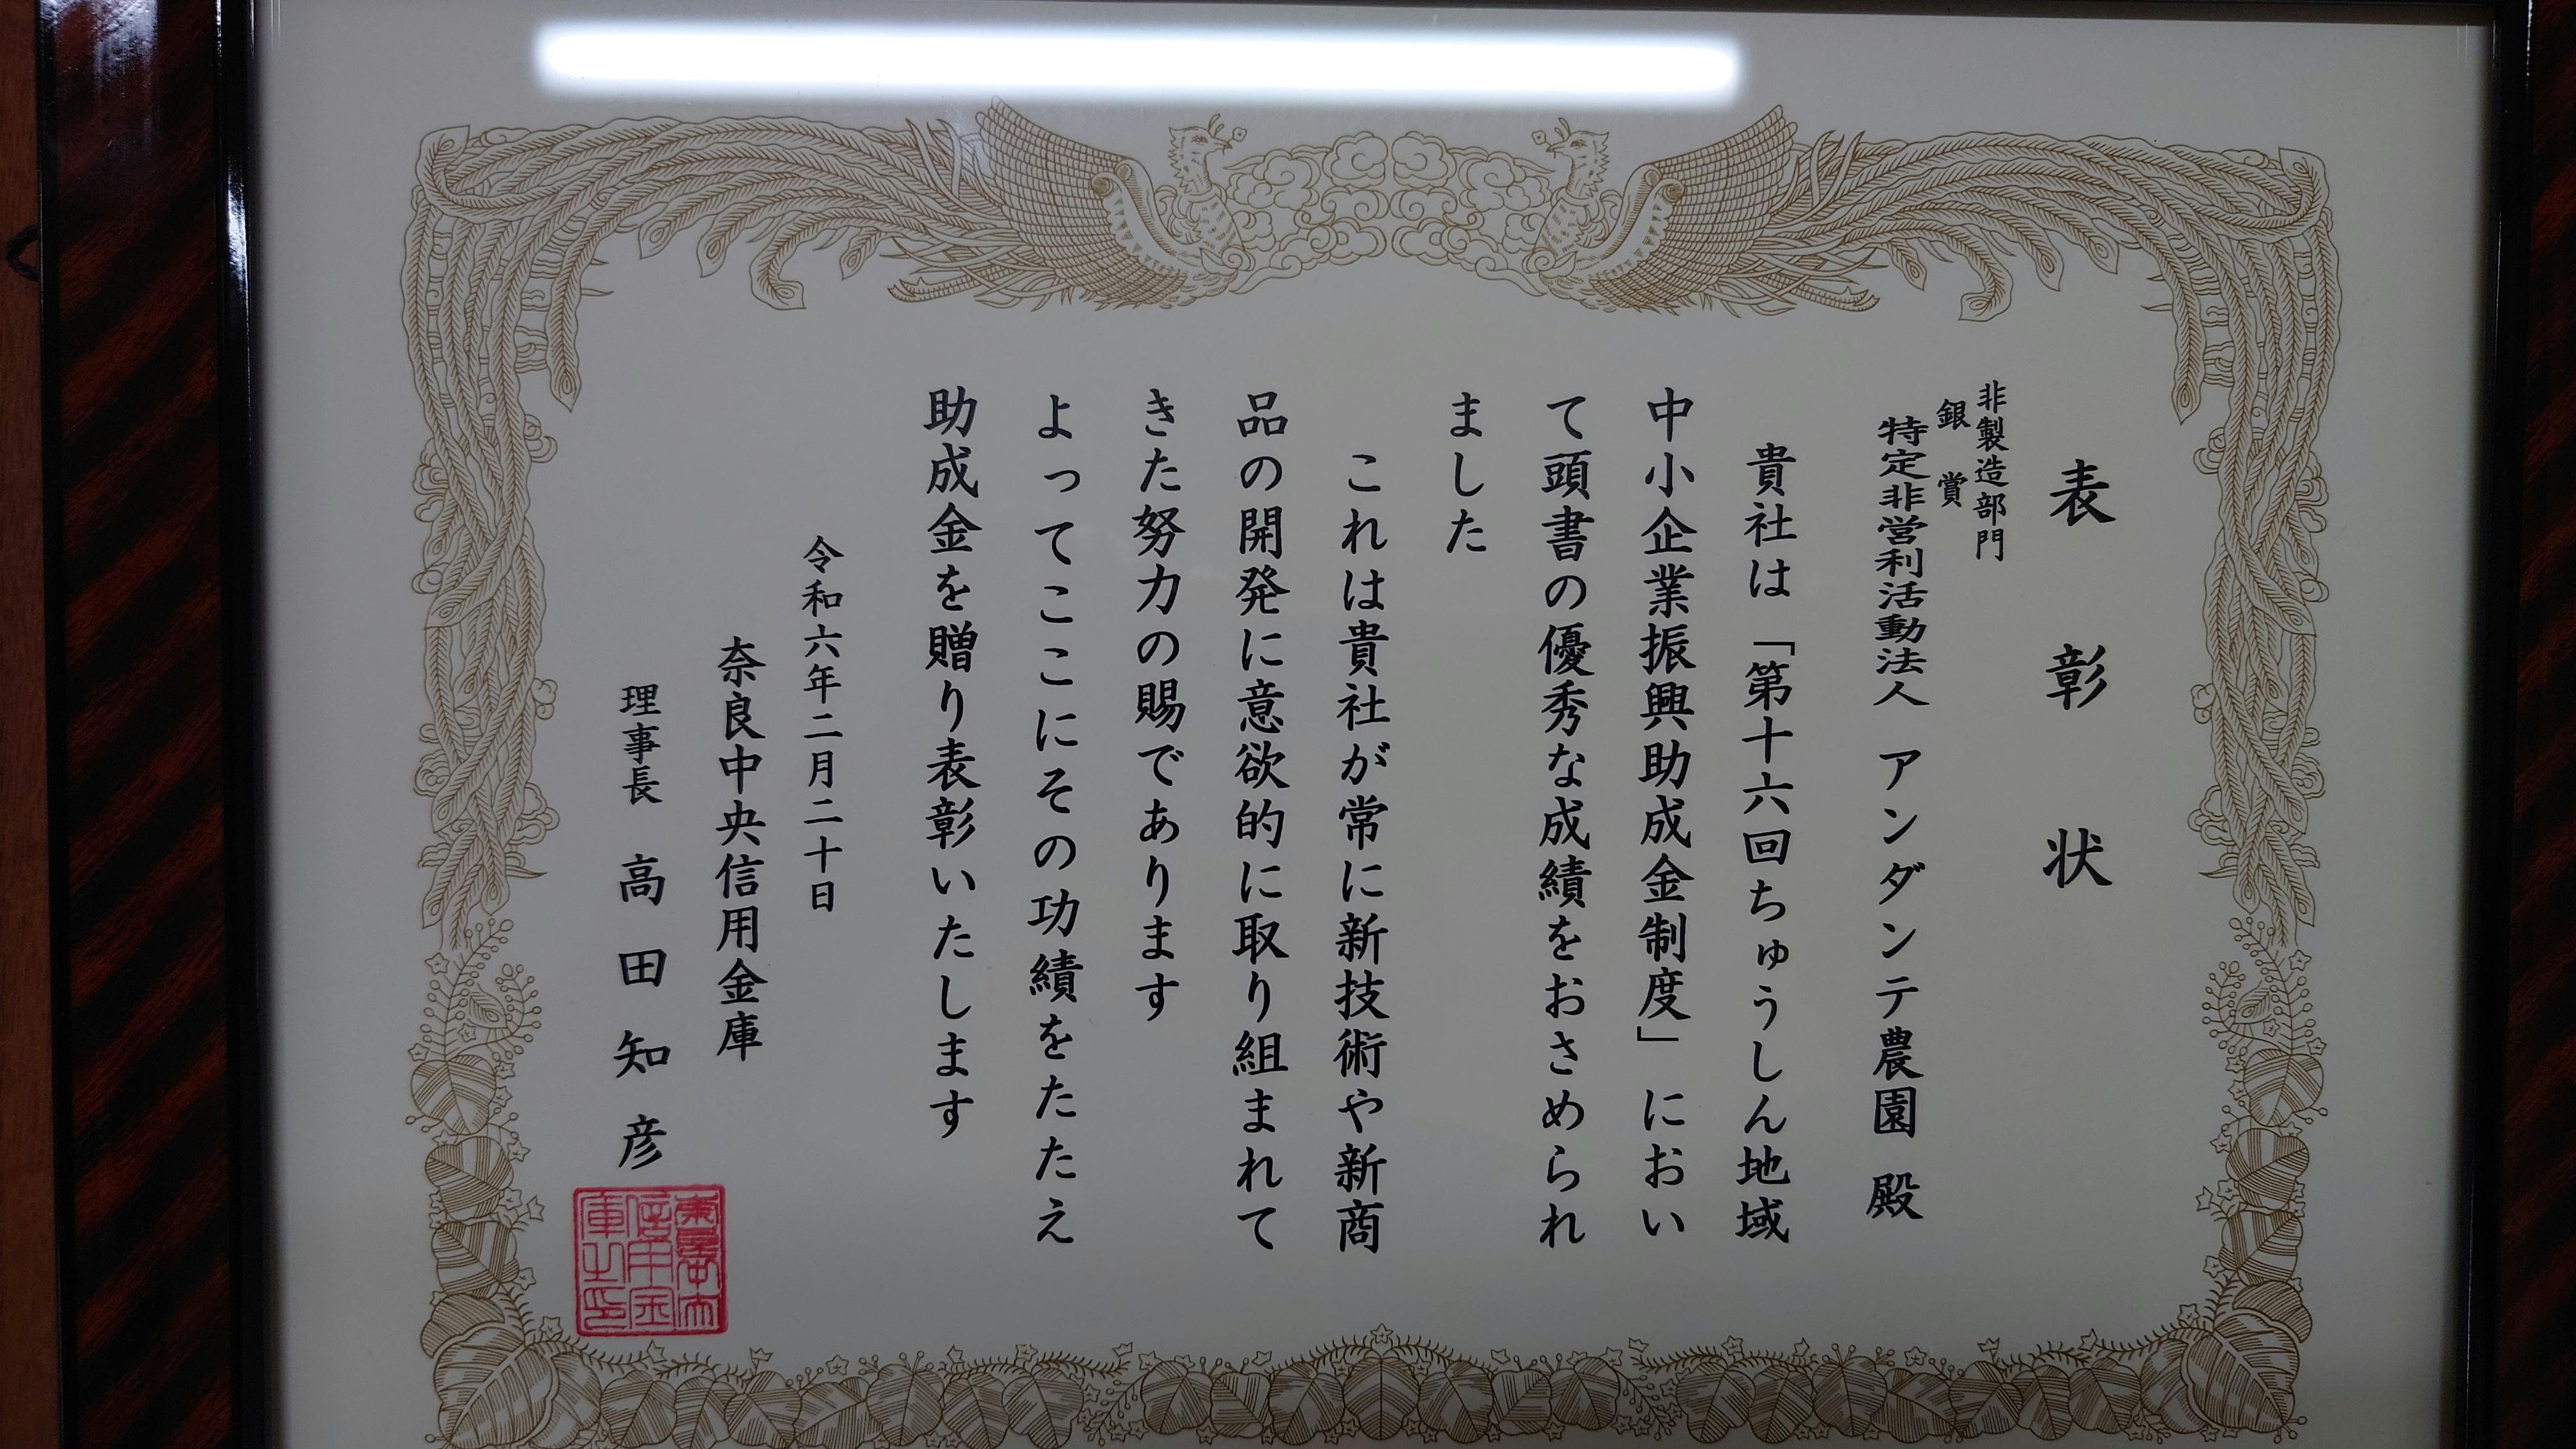 表彰状
非製造部門
銀賞
特定非営利活動法人 アンダンテ農園 殿
貴社は「第十六回ちゅうしん地域
中小企業振興助成金制度」におい
て頭書の優秀な成績をおさめられ
ました
これは貴社が常に新技術や新商
品の開発に意欲的に取り組まれて
きた努力の賜であります
よってここにその功績をたたえ
助成金を贈り表彰いたします
令和六年二月二十日
奈良中央信用金庫
理事長 高田知彦